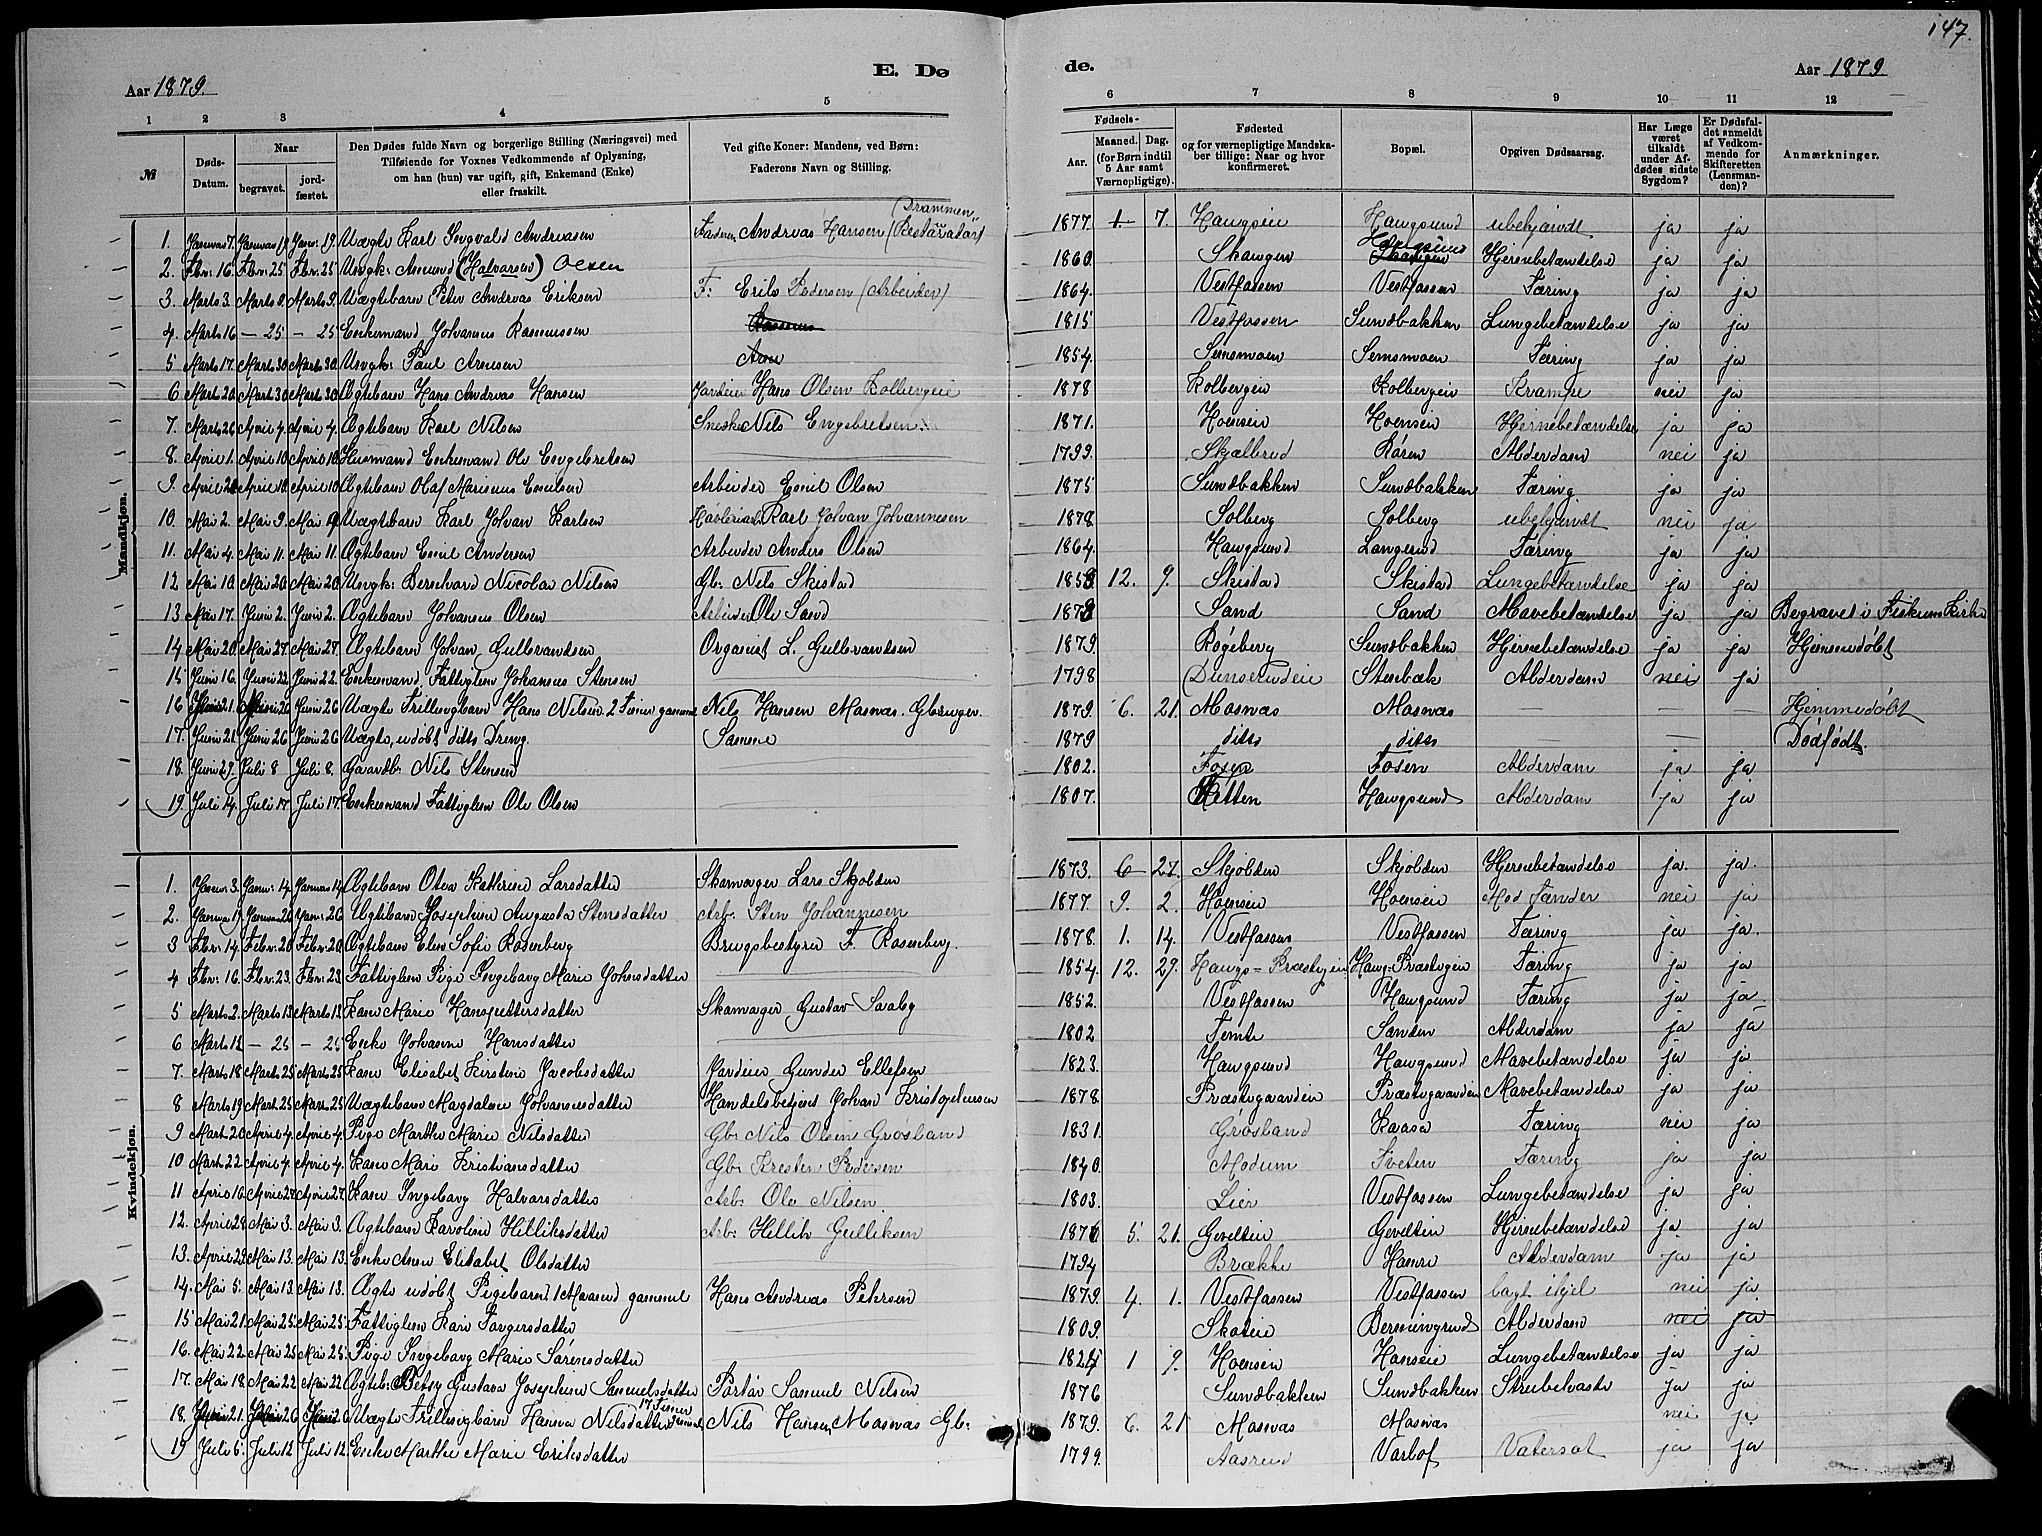 147.
E. Dø
de.
Aar 1879.
Aar 1879
1 2 3 4 5 6 7 8 9 10 11 12
№
Døds-Datum.
Naar
begravet.
jordfæstet.
Den Dødes fulde Navn og borgerlige Stilling (Næringsvei) med
Tilføiende for Voxnes Vedkommende af Oplysning,
om han (hun) var ugift, gift, Enkemand (Enke)
eller fraskilt.
Ved gifte Koner: Mandens, ved Børn:
Faderens Navn og Stilling.
Fødsels-
Aar.
Maaned. Dag.
(for Børn indtil
5 Aar samt
Værnepligtige).
Fødested
og for værnepligtige Mandska-
ber tillige: Naar og hvor
konfirmeret.
Bopæl.
Opgiven Dødsaarsag.
Har Læge
været
tilkaldt
under Af-
dødes sidste
Sygdom?
Er Dødsfal-
det anmeldt
af Vedkom-
mende for
Skifteretten
(Lensman-
den)?
Anmærkninger.
Mandkjøn.
1. Januar 7. Januar 19 Janu: 19. Uægte Karl Sigvald Andreasen Faderen Andreas Hansen (Restaratør) Drammen 1877 1 7. Haugseie Haugsund ubekjendt ja ja
2. Fbr. 16. Fbr. 25 Fbr. 25 Ungk: Amund (Halvorsen) Olsen 1860. Skaugen Haugsund Hjernebetændelse ja ja
3. Marts 3. Marts 9. Marts 9. Uægtebarn Peter Andreas Eriksen F: Erik Pedersen (Arbeider) 1864. Vestfossen Vestfossen Tæring ja ja
4. Marts 16 — 25 — 25 Enkemand Johannes Rasmussen Rasmus 1815 Vestfossen Sundbakken Lungebetændelse ja ja
5 Marts 17. Marts 30 Marts 30. Ungk: Paul Arnesen Arne 1854. Semsmoen Semsmoen Tæring ja ja
6 Marts 20. Mart 30 Mart 30. Ægtebarn Hans Andreas Hansen Jordeier Hans Olsen Kolbergeie 1878 Kolbergeie Kolbergeie Krampe nei ja
7. Marts 26 April 4. April 4. Ægtebarn Karl Nilsen Snekker Nils Engebretsen 1871. Hoenseie Hoenseie Hjernebetændelse ja ja
8. April 1. April 10 April 10. Husmand Enkemand Ole Engebretsen 1799. Skjælbred Røren Alderdom nei ja
9. April 20 April 10. April 10 Ægtebarn Olaf Marinus Emilsen Arbeider Emil Olsen 1875 Sundbakken Sundbakken Tæring ja ja
10. Mai 2. Mai 9. Mai 9. Uægtebarn Karl Johan Karlsen Karl Johan Johannesen 1878 Solberg Solberg ubekjendt nei ja
11. Mai 4. Mai 11. Mai 11. Ægtebarn Emil Andersen Arbeider Anders Olsen 1864. Haugsund Langerud Tæring ja ja
12 Mai 10. Mai 20 Mai 20. Ungk: Bernhard Nicolai Nilsen Gb: Nils Skistad 1858 12. 9. Skistad Skistad Lungebetændelse ja ja
13 Mai 17. Juni 2. Juni 2. Ægtebarn Johannes Olsen Arbeider Ole Sand 1878 Sand Sand Mavebetændelse ja ja Begravet i Fiskum Kirke
14 Mai 20. Mai 27 Mai 27 Ægtebarn Johan Gulbrandsen Organist L. Gulbrandsen 1879. Røgeberg Sundbakken Hjernebetændelse ja ja Hjemmedøbt
15 Juni 16. Juni 22. Juni 22. Enkemand Fattiglem Johannes Stensen 1798 Dunserudeie Stenbæk Alderdom nei ja
16 Juni 21. Juni 26 Juni 26 Uægte Trillingbarn Hans Nilsen 2 Timer gammel Nils Hansen Mosnæs. Gbruger. 1879. 6. 21. Mosnæs Mosnæs — — ja Hjemmedøbt
17. Juni 21 Juni 26 Juni 26 Uægte, udøbt ditto Dreng. Samme 1879 ditto ditto — — ja Dødfødt.
18. Juni 29. Juli 8 Juli 8. Gaardb. Nils Stensen 1802. Fosen Fosen Alderdom ja ja
19 Juli 14. Juli 17 Juli 17. Enkemand Fattiglem Ole Olsen 1807. Retten Haugsund Alderdom ja ja
Kvindekjøn.
1. Janu: 3. Janu: 14. Januar 14 Ægtebarn Olea Kathrine Larsdatter Skomager Lars Skjolden 1873. 6 27. Skjolden Skjolden Hjernebetændelse ja. ja.
2. Janua 19. Januar 26 Janu: 26 Ægtebarn Josephine Augusta Stensdatter Arb: Sten Johannesen 1877 9. 2. Hoenseie Hoenseie Med Tænder nei ja
3 Fbr: 14. Febr. 20 Febr. 20 Ægtebarn Elen Sofie Rosenberg Brugsbestyrer F. Rosenberg. 1878. 1. 14. Vestfossen Vestfossen Tæring ja ja.
4 Fbr. 16. Fbr. 23. Fbr. 23. Fattiglem Pige Ingeborg Marie Johnsdatter 1854. 12. 29. Haugs-Præstegjeie Haug-Præstegjeie Tæring ja ja
5 Marts 2. Marts 13 Marts 13 Kone Marie Hanspettersdatter Skomager Gustav Saaby 1852. Vestfossen Haugsund Tæring ja ja
6 Marts 12 — 25 — 25 Enke Johanne Hansdatter 1802 Temte Sanden Alderdom ja ja
7. Marts 18 Marts 25 Marts 25 Kone Elisabet Kirstine Jacobsdatter Jordeier Gunder Ellefsen 1823. Haugsund Haugsund Mavebetændelse ja ja
8 Marts 19 Mart. 25 Mart. 25 Uægtebarn Magdalene Johannesdatter Handelsbetjent Johan Kristophersen 1878 Præstegaardeie Præstegaardeie Mavebetændelse ja ja
9 Mart. 20 April 4. April 4. Pige Marthe Marie Nilsdatter Gb: Nils Olsen Grøsland 1831. Grøsland Kaasa Tæring nei ja
10 Mart. 22 April 4. April 4. Kone Mari Kristiansdatter Gb: Kresten Pedersen 1840. Modum Tveten Tæring ja ja
11 April 16. April 27. April 27. Kone Ingeborg Halvorsdatter Arb: Ole Nilsen 1803. Lier Vestfossen Lungebetændelse ja ja
12. April 28 Mai 3. Mai 3. Ægtebarn Karoline Helliksdatter Arb: Hellik Gulliksen 1876 5. 21. Gevelteie Geveltein Hjernebetændelse ja ja
13. April 29 Mai 13. Mai 13. Enke Anne Elisabet Olsdatter 1794 Brække Hamre Alderdom ja ja
14. Mai 5. Mai 13. Mai 13. Ægte udøbt Pigebarn 1 Maaned gammel Hans Andreas Petersen 1879. 4. 1. Vestfossen Vestfossen lagt ihjel nei ja
15 Mai 21. Mai 25. Mai 25. Fattiglem Kari Torgersdatter 1809. Skoteie Alderdom nei ja
16. Mai 22. Mai 25 Mai 25. Pige Ingeborg Marie Sørensdatter 1824 1 9. Hoenseie Hanseie Lungebetændelse ja ja
17. Mai 18. Mai 22 Mai 22 Ægteb: Betsy Gustava Josephine Samuelsdatter Portør Samuel Nilsen 1876 Sundbakken Sundbakken Strubehoste ja ja
18. Juni 21. Juni 26 Juni 26 Uægte Trillingbarn Hanna Nilsdatter 17 Timer gammel Nils Hansen Mosnæs Gb: 1879. 6. 21 Mosnæs Mosnæs nei ja
19 Juli 6. Juli 12 Juli 12. Enke Marthe Marie Eriksdatter 1799. Aasrud Varlof Vatersot ja ja